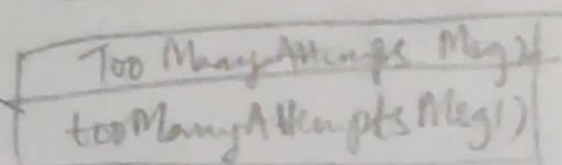 Too Many Attempts Msg
tooManyAttemptsMsg()